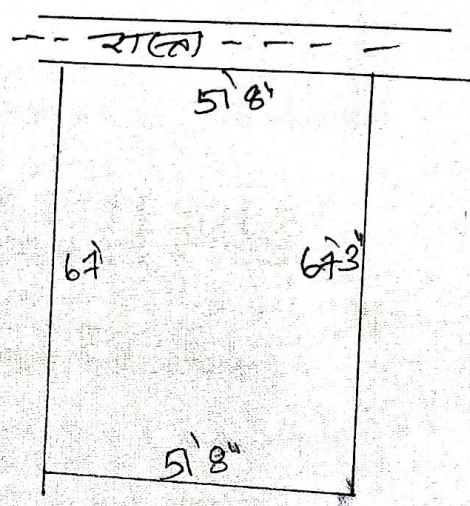 -- रास्ता - - - -
51'8"
67' 67'3"
51'8"